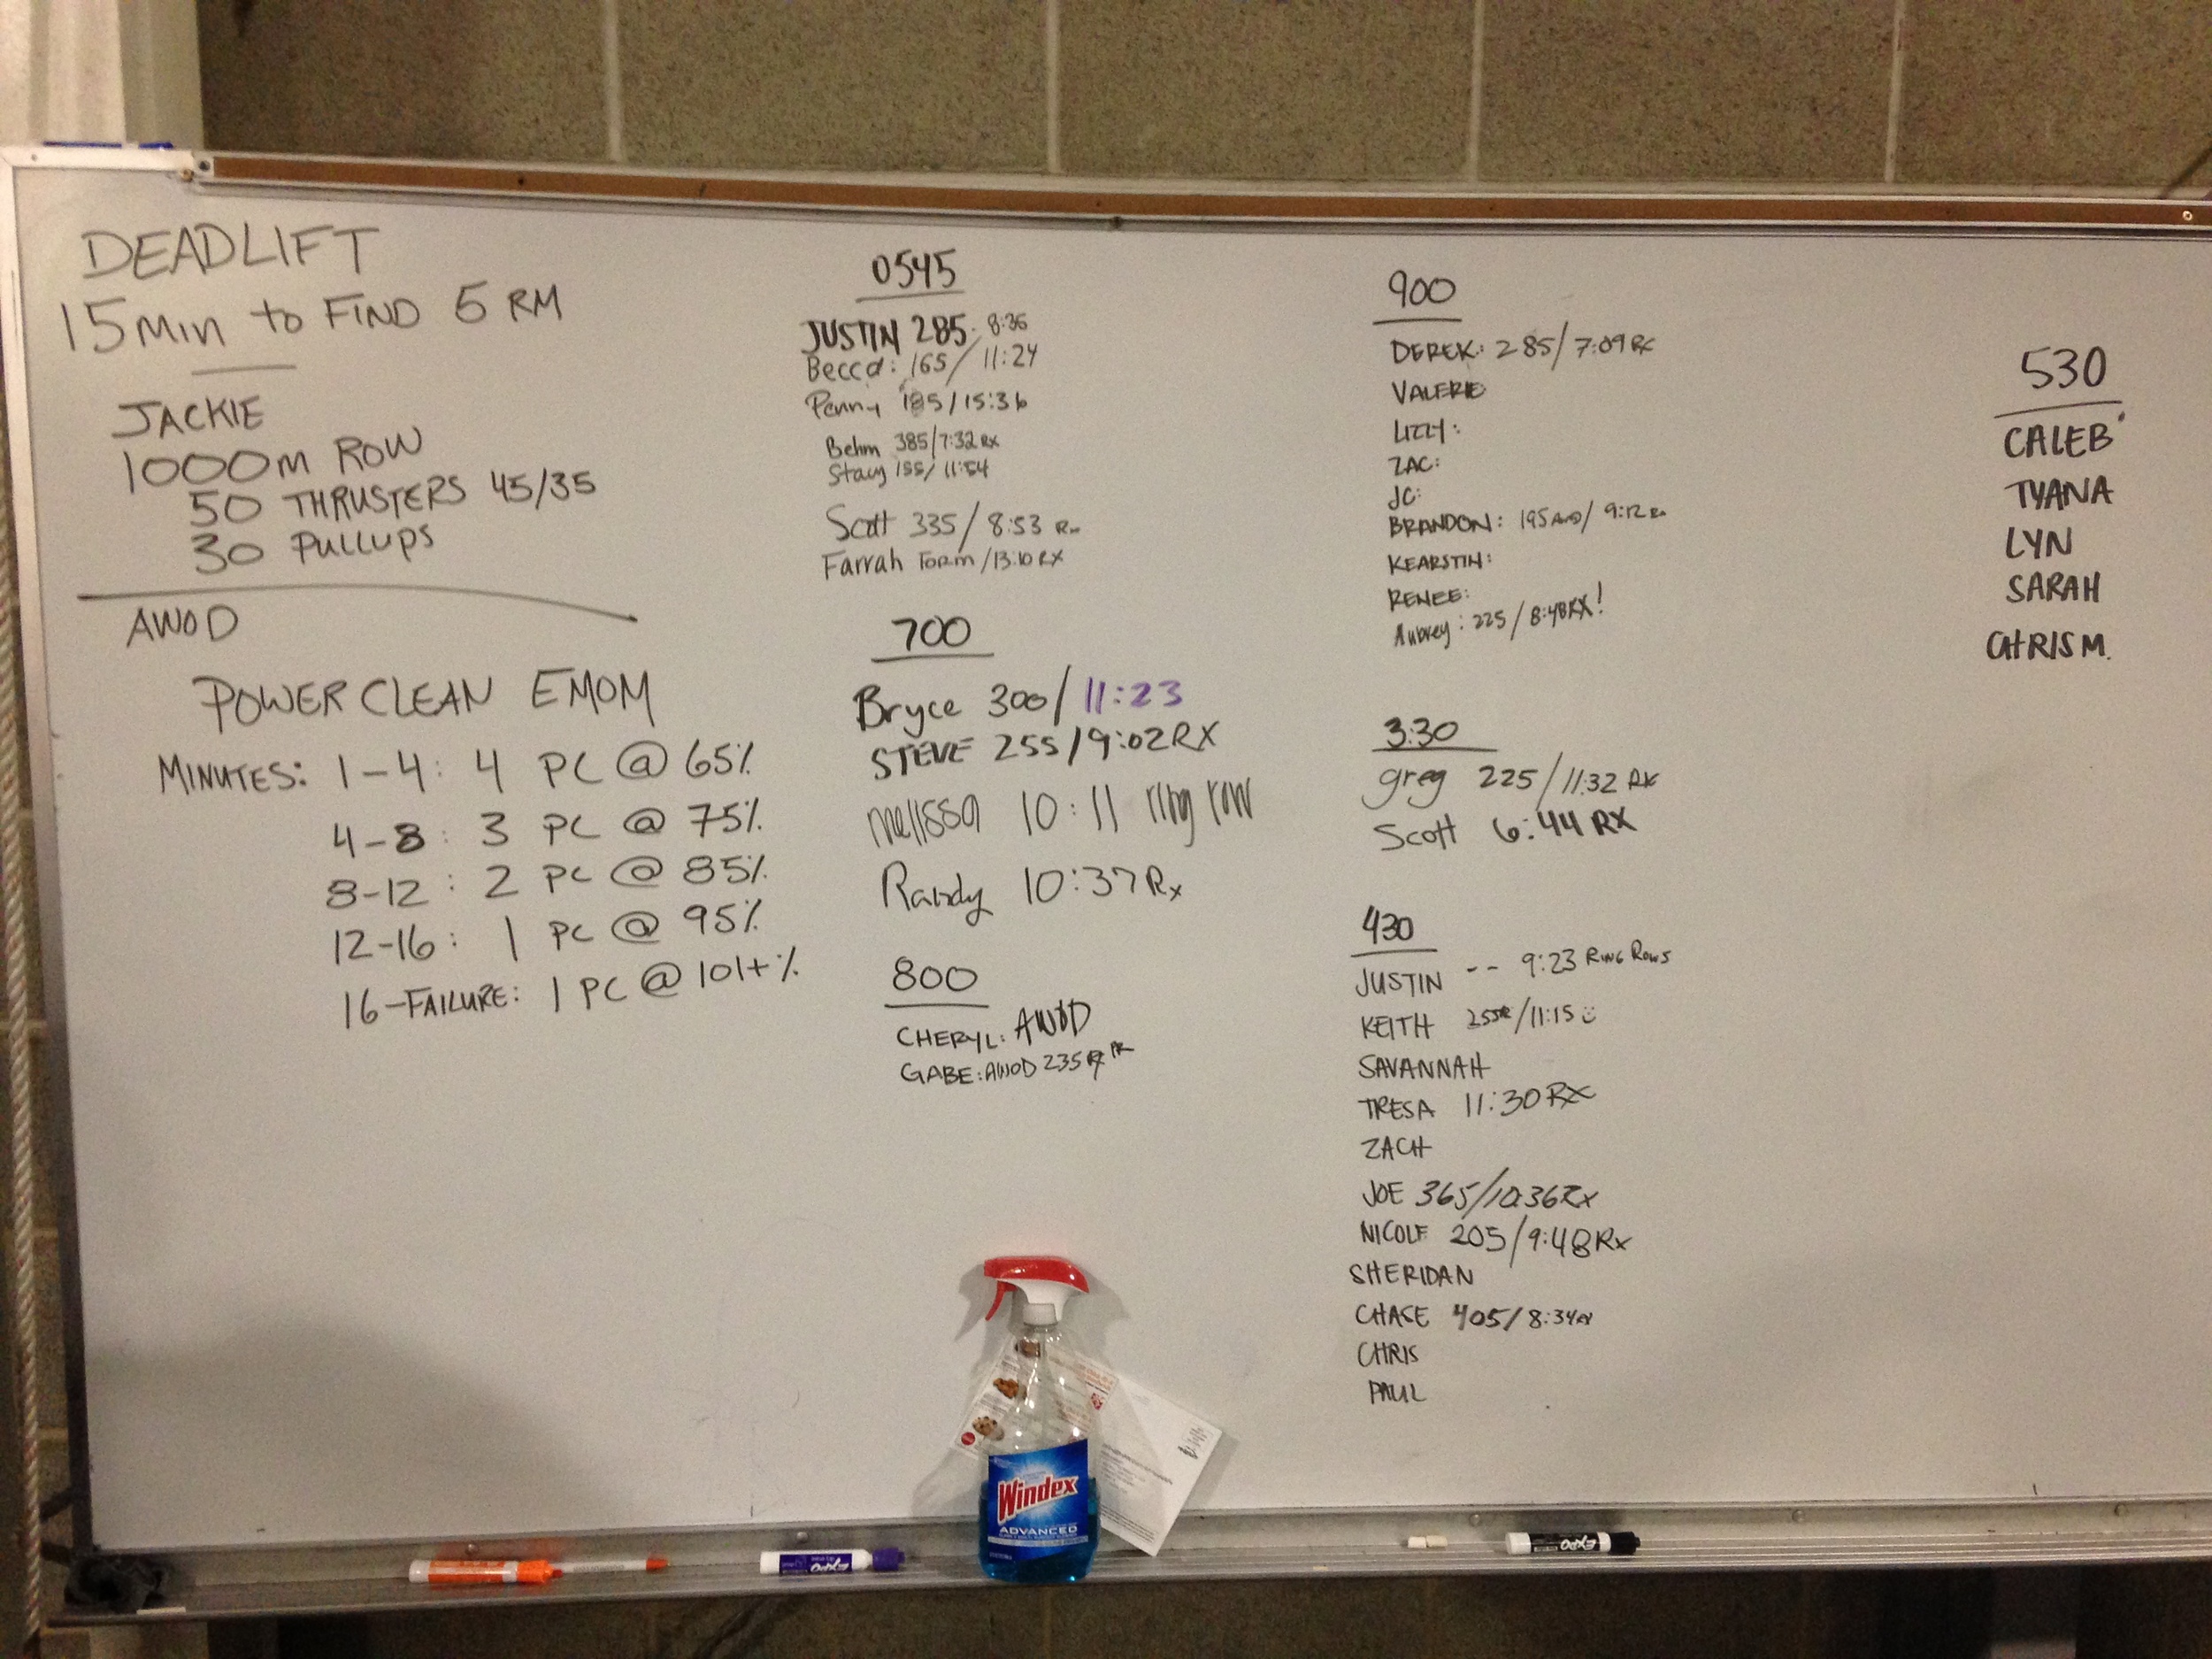 DEADLIFT
15 Min to FIND 5 RM
JACKIE
1000m ROW
50 THRUSTERS 45/35
30 PULLUPS
AWOD
POWER CLEAN EMOM
MINUTES: 1-4: 4 PC @ 65%
4-8: 3 PC @ 75%
8-12: 2 PC @ 85%
12-16: 1 PC @ 95%
16-FAILURE: 1 PC @ 101+%
0545
JUSTIN 285 8:36
Becca: 165/11:24
Penny 185/15:36
Behm 385/7:32 RX
Stacy 155/11:54
Scott 335/8:53 Rx
Farrah Form/13:10 RX
700
Bryce 300/11:23
STEVE 255/9:02 RX
melissa 10:11 ring row
Randy 10:37 Rx
800
CHERYL: AWOD
GABE: AWOD 235 PR
900
DEREK: 285/7:09 RX
VALERIE
LIZZY:
ZAC:
JC:
BRANDON: 195 AWOD/9:12 Rx
KEARSTIN:
RENEE:
Aubrey: 225/8:48 RX!
3:30
greg 225/11:32 RX
Scott 6:44 RX
430
JUSTIN -- 9:23 RING ROWS
KEITH /11:15
SAVANNAH
TRESA 11:30 RX
ZACH
JOE 365/10:36 Rx
NICOLE 205/9:48 Rx
SHERIDAN
CHASE 405/8:34
CHRIS
PAUL
530
CALEB
TYANA
LYN
SARAH
CHRIS M.
Windex
ADVANCED
EXPO
EXPO